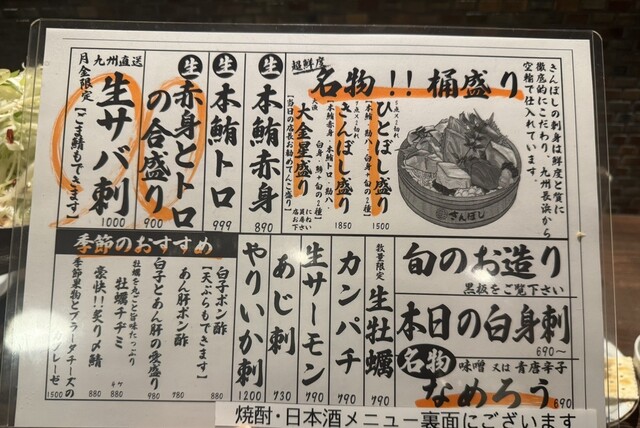 きんぼしの刺身は鮮度と質に
徹底的にこだわり、九州長浜から
空輸で仕入れています。
超鮮度
名物!!桶盛り
きんぼし
ひとぼし盛り
5点×2切れ
【本鮪・勘八・白身+旬の2種】
1500
きんぼし盛り
5点×3切れ
【本鮪赤身・本鮪トロ・勘八・白身・鯵+旬の2種】
1850
大金星盛り
【当日の店長お勧めてんこ盛り】
生本鮪赤身
890
生本鮪トロ
999
生赤身とトロの合盛り
900
月金限定
九州直送
生サバ刺
【ごま鯖もできます】
1000
旬のお造り
黒板をご覧下さい
本日の白身刺
690〜
名物
味噌 又は 青唐辛子
なめろう
890
数量限定
生牡蠣
790
カンパチ
790
生サーモン
790
あじ刺
730
やりいか刺
1200
季節のおすすめ
白子ポン酢
【天ぷらもできます】
880
あん肝ポン酢
780
白子とあん肝の愛盛り
980
牡蠣を丸ごと旨味たっぷり
牡蠣チヂミ
4ケ
880
豪快!!炙り〆鯖
880
季節果物とブラータチーズの
カプレーゼ
1500
焼酎・日本酒メニュー裏面にございます